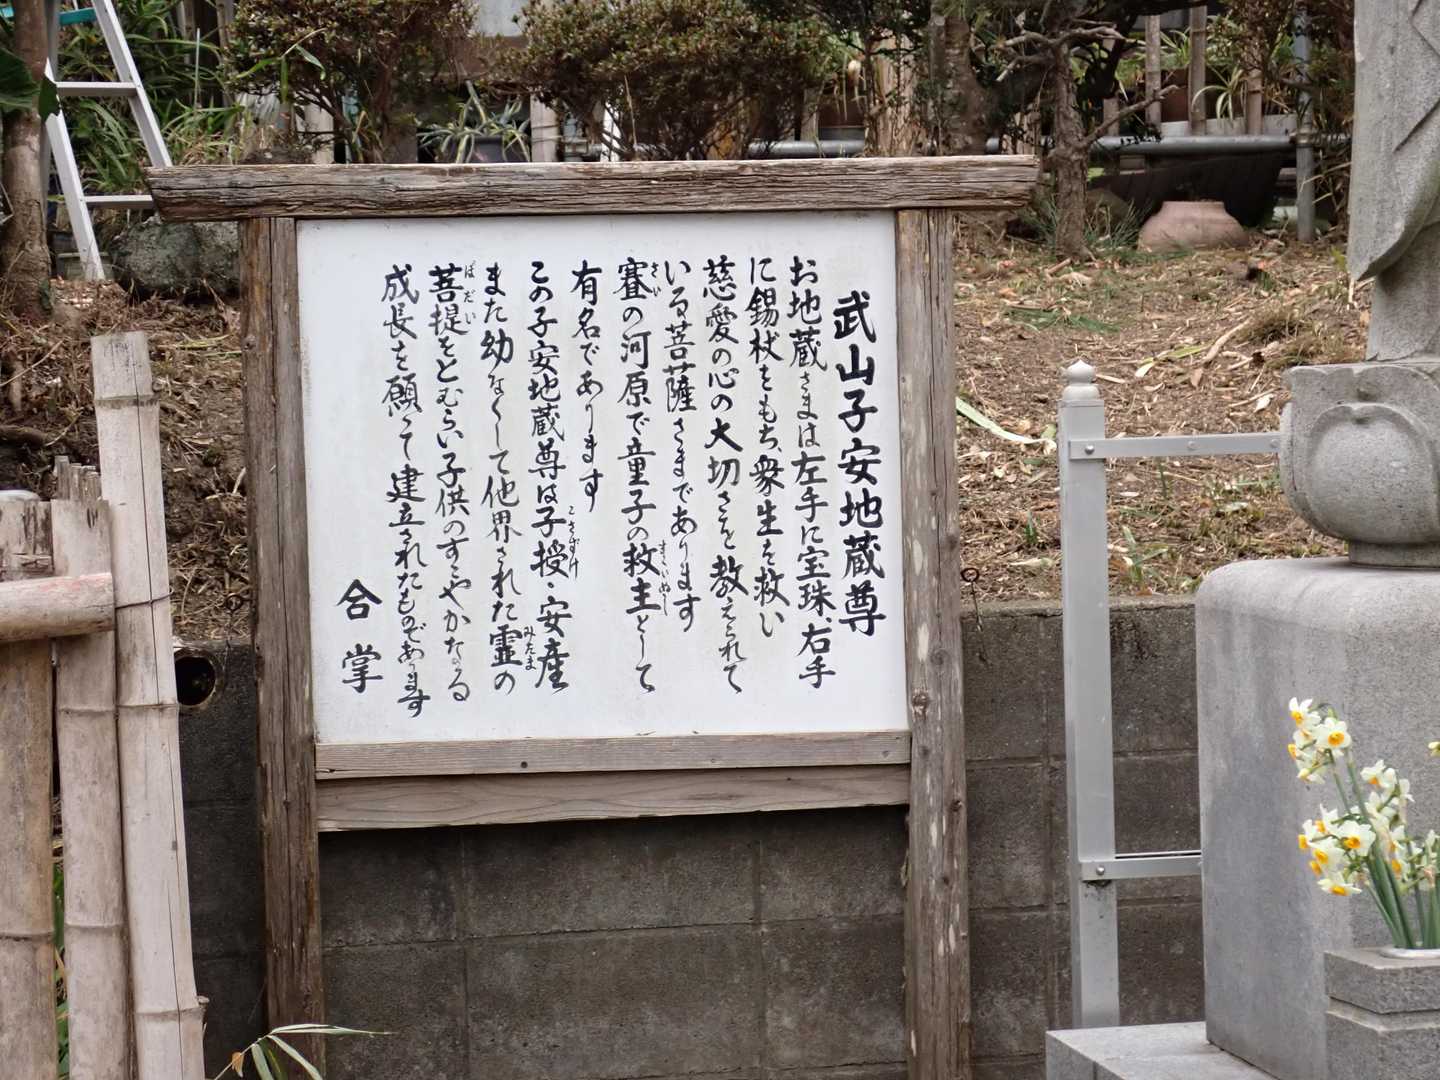 武山子安地蔵尊
お地蔵さまは左手に宝珠、右手
に錫杖をもち、衆生を救い
慈愛の心の大切さを教えられて
いる菩薩さまであります
賽の河原で童子の救主として
有名であります
この子安地蔵尊は子授・安産
また幼なくして他界された霊の
菩提をとむらい子供のすこやかなる
成長を願って建立されたものであります
合掌